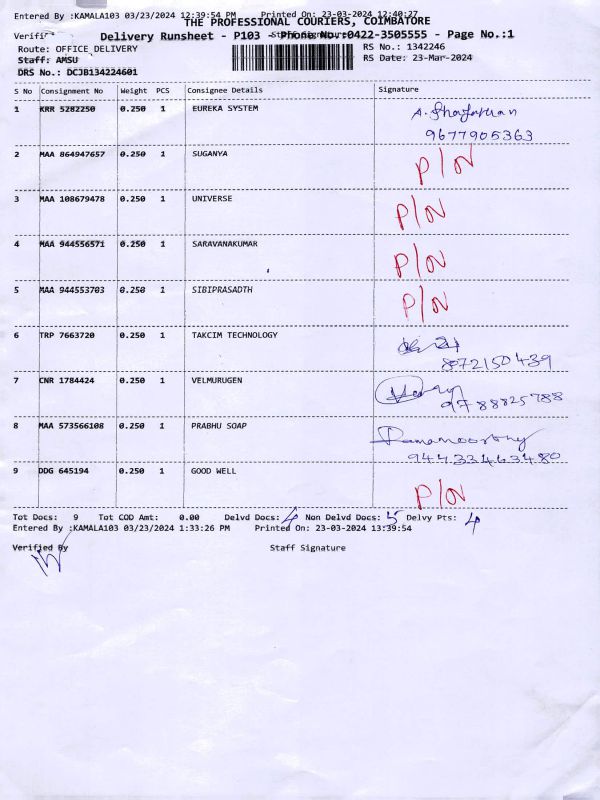 Entered By :KAMALA103 03/23/2024 12:39:54 PM Printed On: 23-03-2024 12:40:27
THE PROFESSIONAL COURIERS, COIMBATORE
Delivery Runsheet - P103 - Phone No.:0422-3505555 - Page No.:1
Route: OFFICE DELIVERY RS No.: 1342246
Staff: AMSU RS Date: 23-Mar-2024
DRS No.: DCJB134224601
S No Consignment No Weight PCS Consignee Details Signature
1 KRR 5282250 0.250 1 EUREKA SYSTEM
9677905363
2 MAA 864947657 0.250 1 SUGANYA P/N
3 MAA 108679478 0.250 1 UNIVERSE P/N
4 MAA 944556571 0.250 1 SARAVANAKUMAR P/N
5 MAA 944553703 0.250 1 SIBIPRASADTH P/N
6 TRP 7663720 0.250 1 TAKCIM TECHNOLOGY
8072150439
7 CNR 1784424 0.250 1 VELMURUGEN
9788825788
8 MAA 573566108 0.250 1 PRABHU SOAP Ramamoorthy
94433463480
9 DDG 645194 0.250 1 GOOD WELL P/N
Tot Docs: 9 Tot COD Amt: 0.00 Delvd Docs: 4 Non Delvd Docs: 5 Delvy Pts: 4
Entered By :KAMALA103 03/23/2024 1:33:26 PM Printed On: 23-03-2024 13:39:54
Verified By Staff Signature